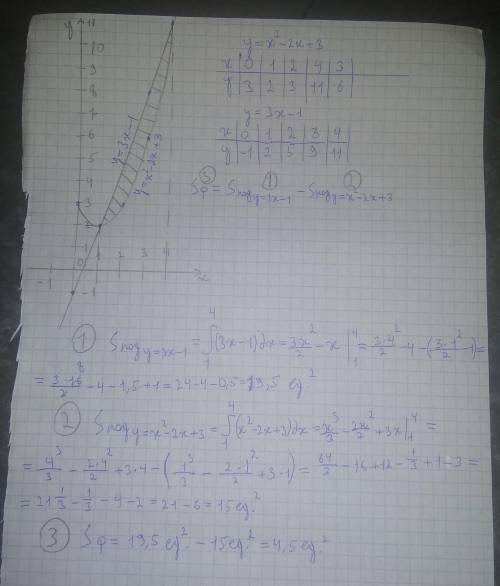 y
11
10
9
8
7
6
5
4
3
2
y=3x-1
y=x²-2x+3
-1 0 1 2 3 4 x
-1
y=x²-2x+3
x 0 1 2 4 3
y 3 2 3 11 6
y=3x-1
x 0 1 2 3 4
y -1 2 5 9 11
③ ① ②
Sф = Sпод y=3x-1 - Sпод y=x²-2x+3
① Sпод y=3x-1 = ∫₁⁴(3x-1)dx = 3x²/2 - x |₁⁴ = 3·4²/2 - 4 - (3·1²/2 - 1) =
= 3·16/2 - 4 - 1,5 + 1 = 24 - 4 - 0,5 = 19,5 ед.²
② Sпод y=x²-2x+3 = ∫₁⁴(x²-2x+3)dx = x³/3 - 2x²/2 + 3x |₁⁴ =
= 4³/3 - 2·4²/2 + 3·4 - (1³/3 - 2·1²/2 + 3·1) = 64/3 - 16 + 12 - 1/3 + 1 - 3 =
= 21 1/3 - 1/3 - 4 - 2 = 21 - 6 = 15 ед.²
③ Sф = 19,5 ед.² - 15 ед.² = 4,5 ед.²